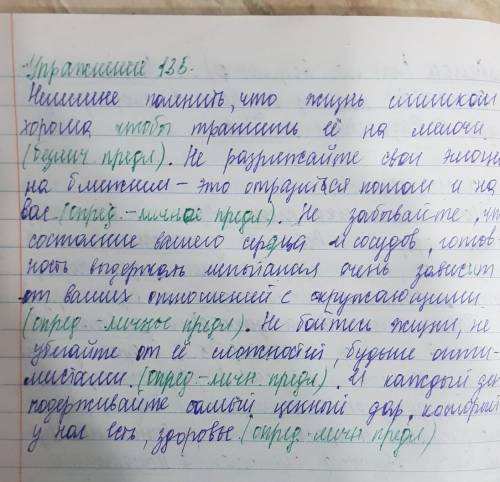 Упражнений 135.
Нелишне помнить, что жизнь слишком
хороша чтобы тратить её на мелочи.
(безлич предл). Не разряжайте свои эмоц
на ближнем – это отразится потом и на
вас (опред.-личной предл). Не забывайте, чт
состояние вашего сердца и сосудов, готов
ность выдержать испытания очень зависит
от ваших отношений с окружающими
(опред-личные предл). Не бойтесь жизни, не
убегайте от её сложностей, будьте опти-
мистами. (опред-личн. предл). И каждый де
подерживайте самый ценный дар, который
у нас есть, здоровье. (опред-личн предл)